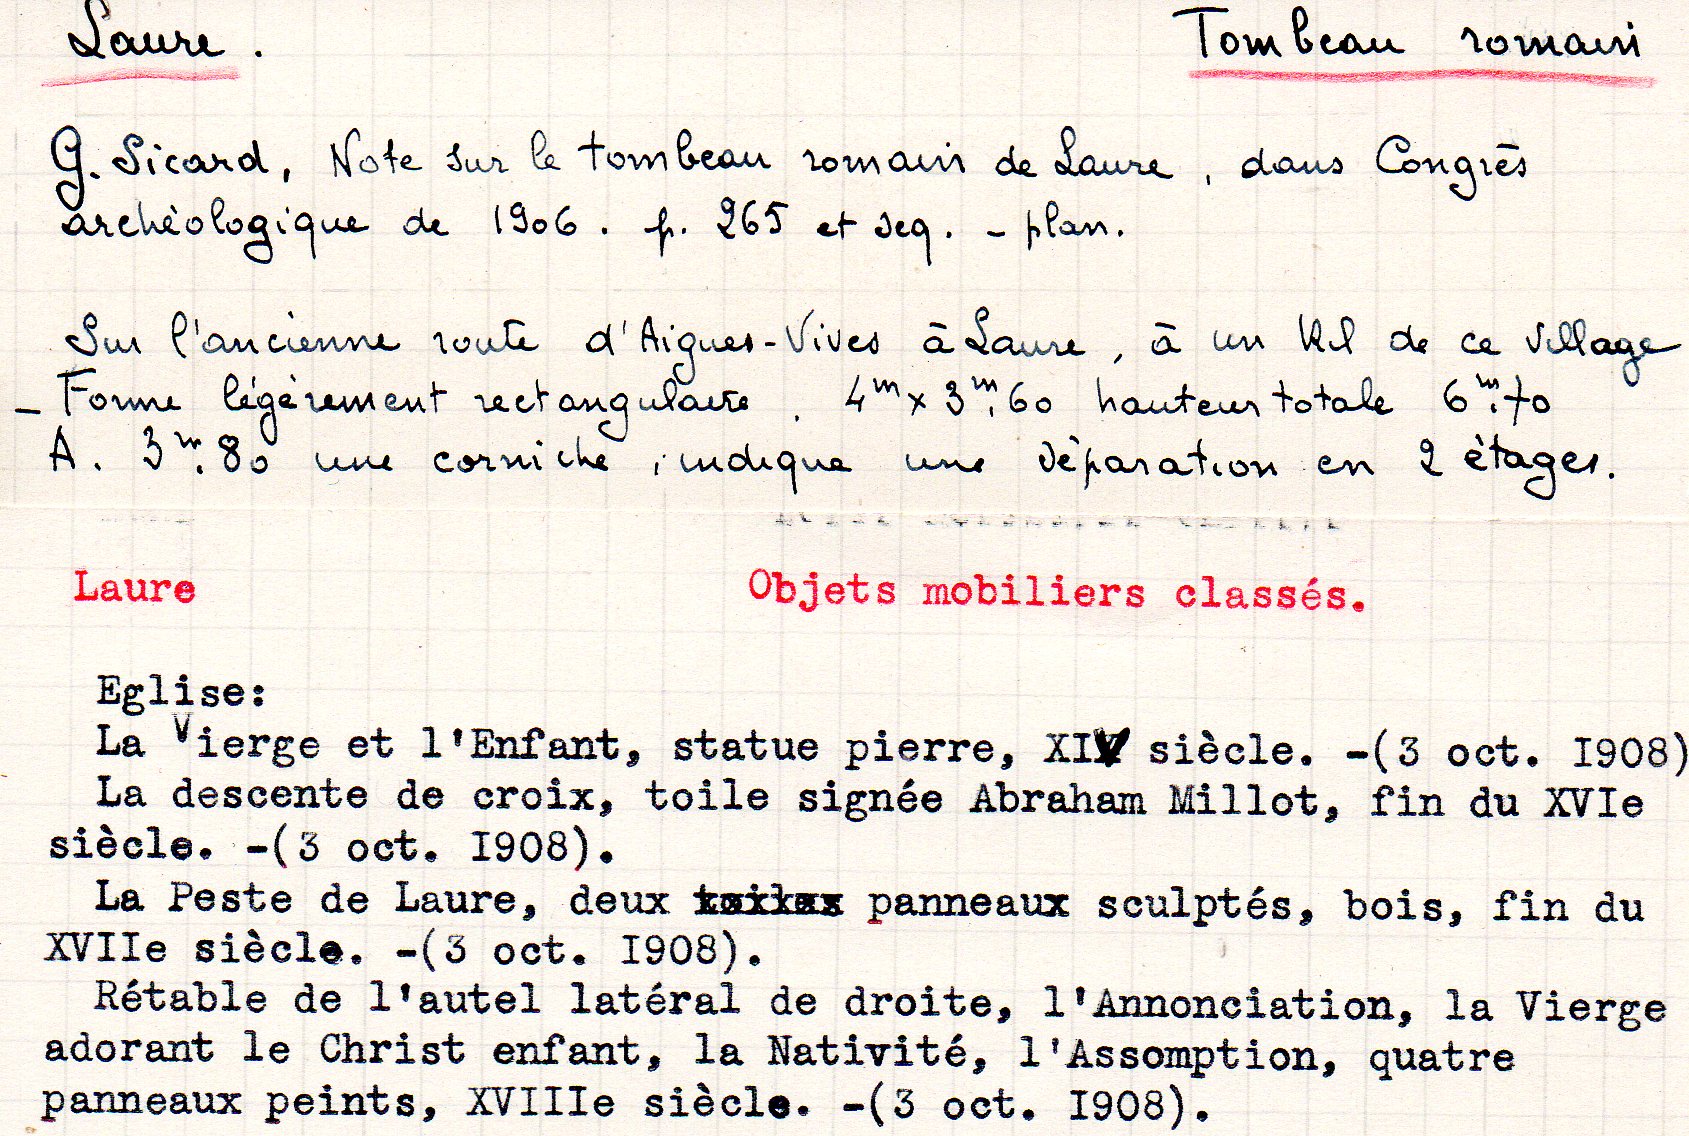 Laure. Tombeau romain
G. Sicard, Note sur le tombeau romain de Laure, dans Congrès
archéologique de 1906. p. 265 et seq. - plan.
Sur l'ancienne route d'Aigues-Vives à Laure, à un Kil de ce village
- Forme légèrement rectangulaire. 4m x 3m.60 hauteur totale 6m.70
A. 3m.80 une corniche indique une séparation en 2 étages.
Laure Objets mobiliers classés.
Eglise:
La Vierge et l'Enfant, statue pierre, XIV siècle. -(3 oct. I908)
La descente de croix, toile signée Abraham Millot, fin du XVIe
siècle. -(3 oct. I908).
La Peste de Laure, deux panneaux sculptés, bois, fin du
XVIIe siècle. -(3 oct. I908).
Rétable de l'autel latéral de droite, l'Annonciation, la Vierge
adorant le Christ enfant, la Nativité, l'Assomption, quatre
panneaux peints, XVIIIe siècle. -(3 oct. I908).